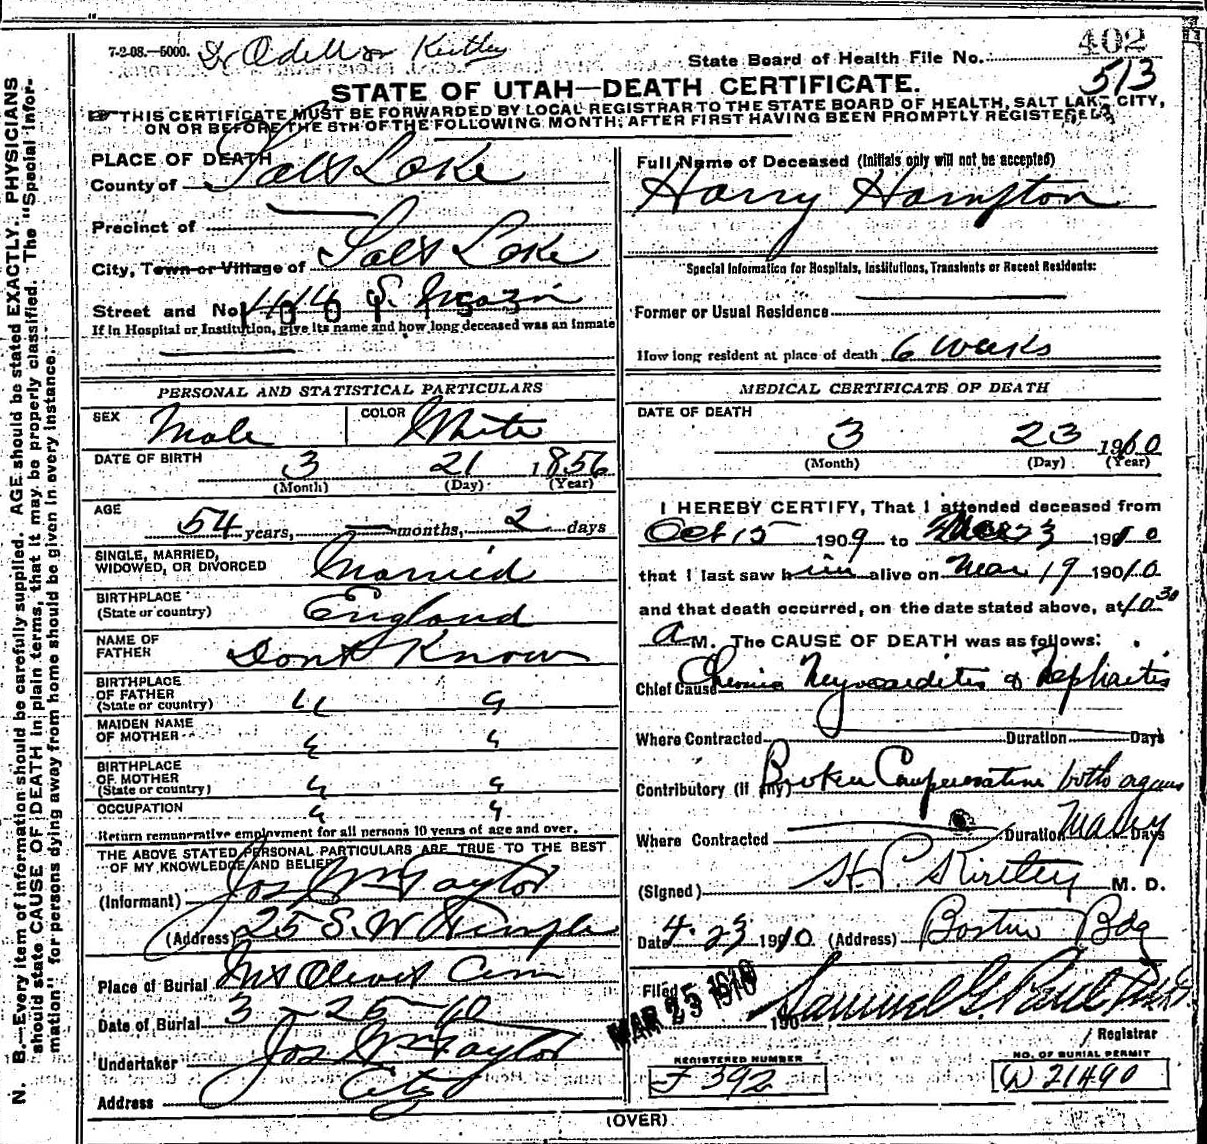 402
7-2-08.—5000. Dr Odell or Kirtley
State Board of Health File No.
513
STATE OF UTAH—DEATH CERTIFICATE.
THIS CERTIFICATE MUST BE FORWARDED BY LOCAL REGISTRAR TO THE STATE BOARD OF HEALTH, SALT LAKE CITY,
ON OR BEFORE THE 5TH OF THE FOLLOWING MONTH, AFTER FIRST HAVING BEEN PROMPTLY REGISTERED.
PLACE OF DEATH
County of Salt Lake
Precinct of —
City, Town or Village of Salt Lake
Street and No. S. Main
If in Hospital or Institution, give its name and how long deceased was an inmate
Full Name of Deceased (Initials only will not be accepted)
Harry Hampton
Special Information for Hospitals, Institutions, Transients or Recent Residents:
Former or Usual Residence
How long resident at place of death 6 weeks
PERSONAL AND STATISTICAL PARTICULARS
SEX Male COLOR White
DATE OF BIRTH 3 21 1856
(Month) (Day) (Year)
AGE
54 years, — months, 2 days
SINGLE, MARRIED,
WIDOWED, OR DIVORCED Married
BIRTHPLACE
(State or country) England
NAME OF
FATHER Dont Know
BIRTHPLACE
OF FATHER
(State or country) " "
MAIDEN NAME
OF MOTHER " "
BIRTHPLACE
OF MOTHER
(State or country) " "
OCCUPATION " "
Return remunerative employment for all persons 10 years of age and over.
THE ABOVE STATED PERSONAL PARTICULARS ARE TRUE TO THE BEST
OF MY KNOWLEDGE AND BELIEF
(Informant) Jos Wm Taylor
(Address) 25 S. W Temple
Place of Burial Mt Olivet Cem
Date of Burial 3 - 25 - 10
Undertaker Jos Wm Taylor
Address City
MEDICAL CERTIFICATE OF DEATH
DATE OF DEATH
3 23 1910
(Month) (Day) (Year)
I HEREBY CERTIFY, That I attended deceased from
Oct 15 1909 to Mar 23 1910
that I last saw him alive on Mar 19 1910
and that death occurred, on the date stated above, at 10 30
a M. The CAUSE OF DEATH was as follows:
Chief Cause Chronic Myocarditis & Nephritis
Where Contracted Duration Days
Contributory (If any) Broken Compensation both
Where Contracted Duration Days
(Signed) H.P. Kirtley M. D.
Date 4-23 1910 (Address) Boston Bdg
Filed MAR 25 1910 190
Registrar
REGISTERED NUMBER
J 392
NO. OF BURIAL PERMIT
W 21490
(OVER)
N. B.—Every item of information should be carefully supplied. AGE should be stated EXACTLY. PHYSICIANS
should state CAUSE OF DEATH in plain terms, that it may be properly classified. The "Special Infor-
mation" for persons dying away from home should be given in every instance.